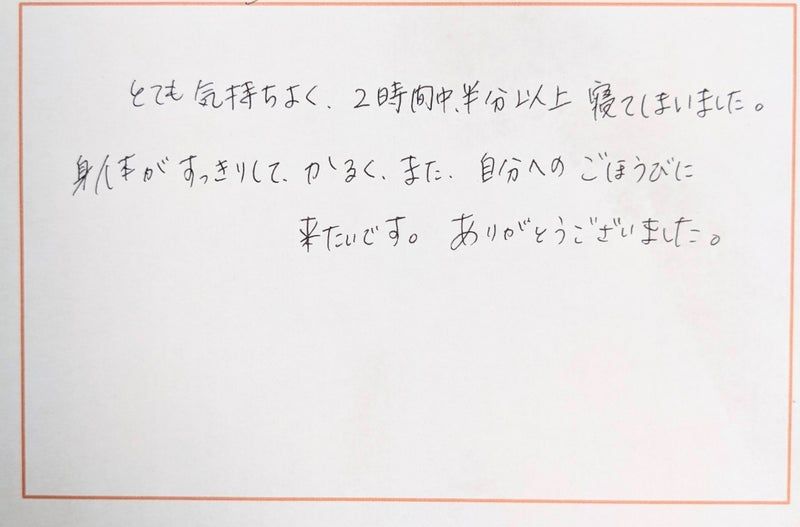 とても気持ちよく、2時間中、半分以上 寝てしまいました。
身体がすっきりして、かるく、また、自分へのごほうびに
来たいです。 ありがとうございました。